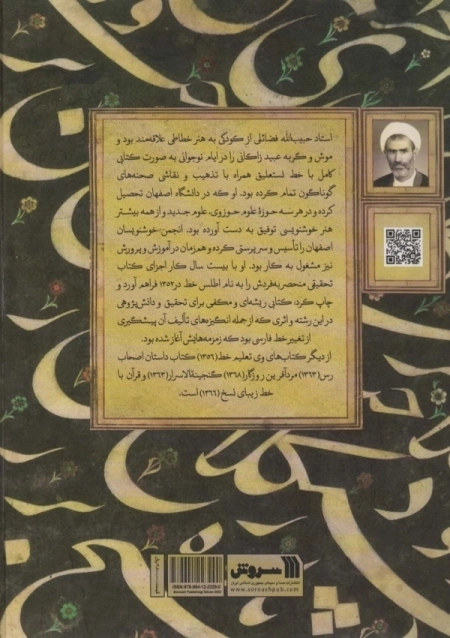 استاد حبیب‌الله فضائلی از کودکی به هنر خطاطی علاقه‌مند بود و
موش و گربه عبید زاکانی را در ایام نوجوانی به صورت کتابی
کامل با خط نستعلیق همراه با تذهیب و نقاشی صحنه‌های
گوناگون تمام کرده بود. او که در دانشگاه اصفهان تحصیل
کرده و در هر سه حوزهٔ علوم حوزوی، علوم جدید و از همه بیشتر
هنر خوشنویسی توفیق به دست آورده بود. انجمن خوشنویسان
اصفهان را تأسیس و سرپرستی کرده و همزمان در آموزش و پرورش
نیز مشغول به کار بود. او با بیست سال کار اجزای کتاب
تحقیقی منحصربه‌فردش را به نام اطلس خط در ۱۳۵۲ فراهم آورد و
چاپ کرد؛ کتابی ریشه‌ای و مکفی برای تحقیق و دانش‌پژوهی
در این رشته و اثری که از جمله انگیزه‌های تألیف آن پیشگیری
از تغییر خط فارسی بود که زمزمه‌هایش آغاز شده بود.
از دیگر کتاب‌های وی تعلیم خط (۱۳۵۶) کتاب داستان اصحاب
رس (۱۳۶۳) مردآفرین روزگار (۱۳۶۸) گنجینةالاسرار (۱۳۶۳) و قرآن با
خط زیبای نسخ (۱۳۶۶) است.
سروش
انتشارات صدا و سیمای جمهوری اسلامی ایران
www.soroushpub.com